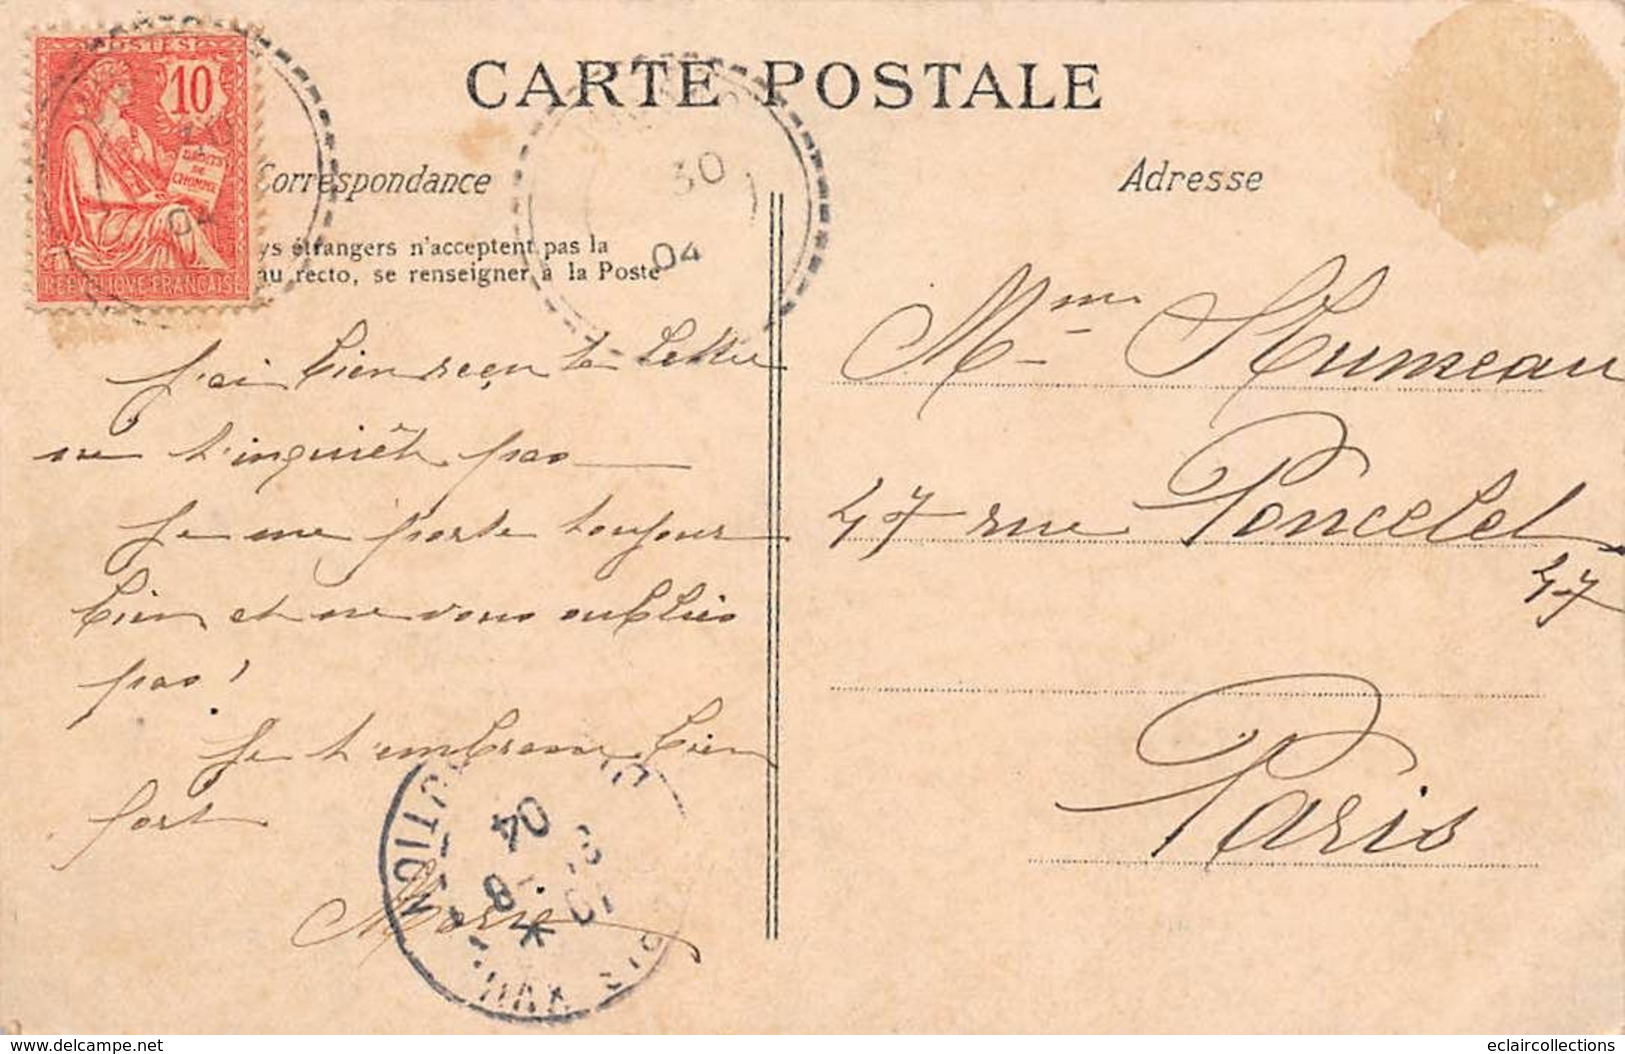 CARTE POSTALE
POSTES
10
DROITS
DE
L'HOMME
REPVBLIQVE FRANCAISE
04
30
04
Correspondance
Adresse
ys étrangers n'acceptent pas la
au recto, se renseigner à la Poste
J'ai bien reçu ta lettre
ne t'inquiète pas
Je me porte toujours
bien et ne vous oublies
pas!
Je t'embrasse bien
fort
Marie
Mme Humeau
47 rue Poncelet
47
Paris
PARIS XVII
DISTRIBUTION
04
delcampe.net
eclaircollections